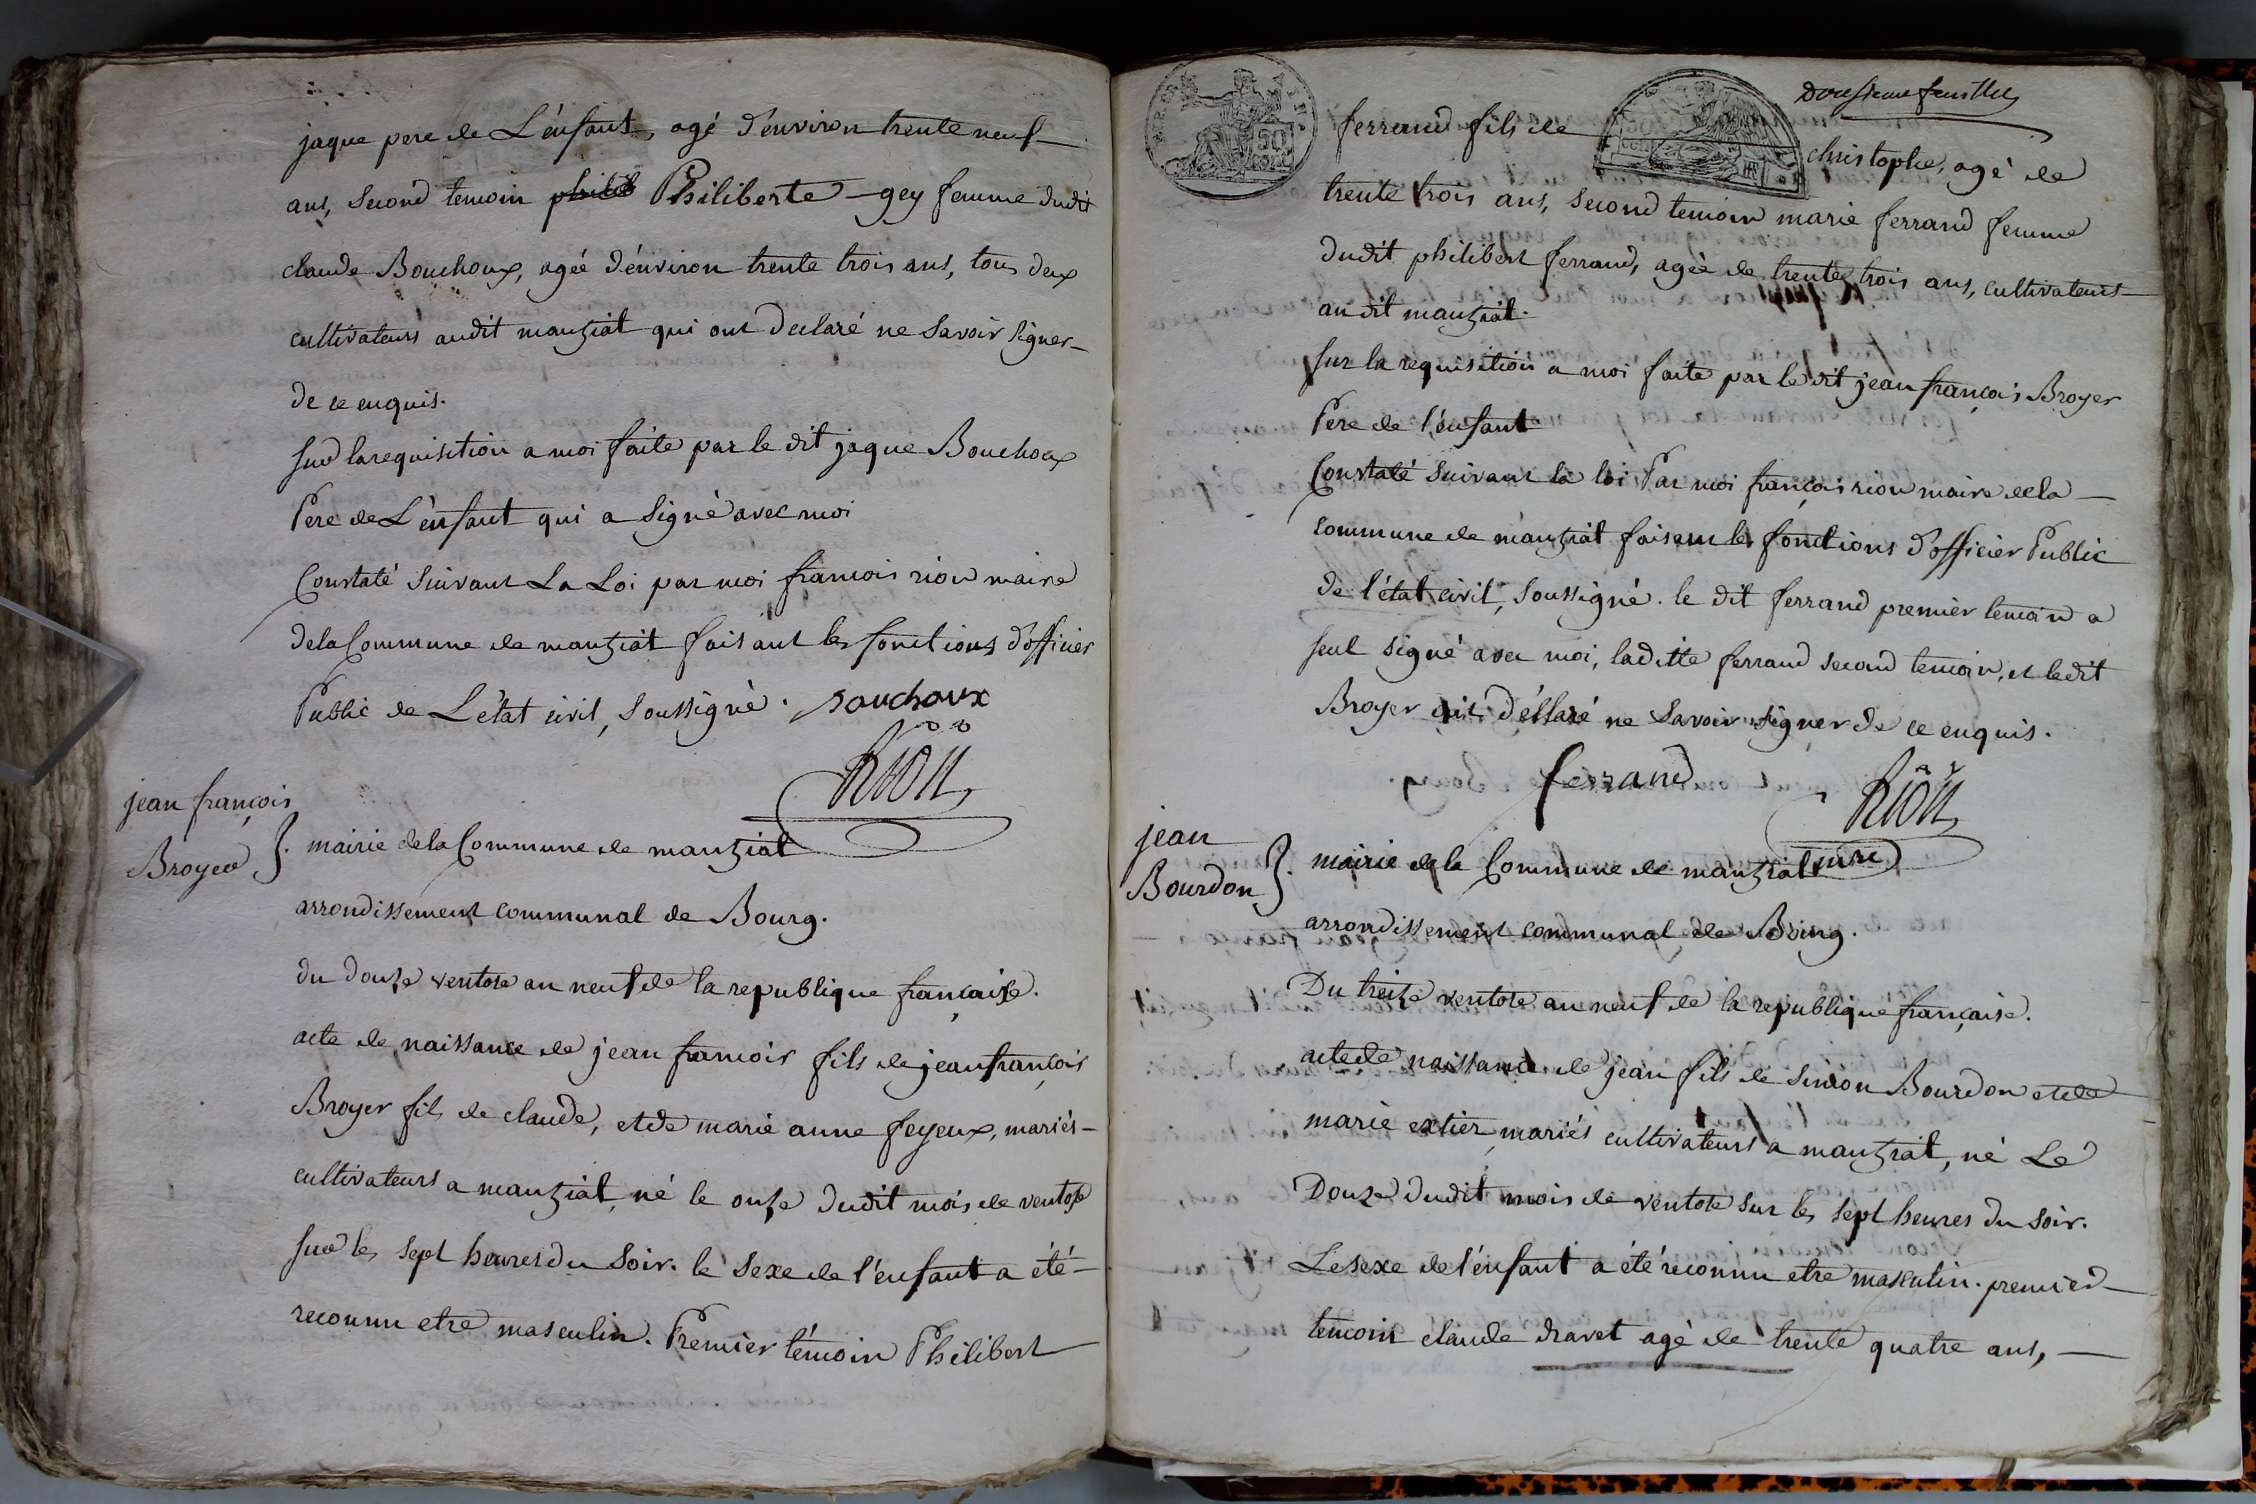 jaque pere de L'énfant, agé d'environ trente neuf
ans, Second temoin Philiberte gey femme dudit
claude Bouchoux, ageé d'énviron trente trois ans, tous deux
cultivateurs audit manziat qui ont declaré ne Savoir signer
de ce enquis.
sur la requisition a moi faite par le dit jaque Bouchoux
Pere de L'énfant qui a Signé avec moi
Constaté Suivant La Loi par moi francois rion maire
de la Commune de manziat faisant les fonctions d'officier
Public de L'état civil, soussigné. Bouchoux
Rion
jean françois
Broyer
mairie de la Commune de manziat
arrondissement communal de Bourg.
du douze ventose an neuf de la republique française.
acte de naissance de jean francois fils de jean françois
Broyer fils de claude, et de marie anne feyeux, mariés
cultivateurs a manziat, né le onze dudit mois de ventose
sur les sept heures du Soir. le Sexe de l'énfant a été
reconnu etre masculin. Premier témoin Philibert
douzieme feuillet
50
ferrand fils de christophe, agé de
trente trois ans, Second temoin marie ferrand femme
dudit philibert ferrand, ageé de trente trois ans, cultivateurs
audit manziat.
sur la requisition a moi faite par le dit jean françois Broyer
Pere de l'énfant
Constaté Suivant la loi Par moi françois rion maire de la
commune de manziat faisant les fonctions d'officier Public
de l'état civil, soussigné. le dit ferrand premier temoin a
seul signé avec moi, laditte ferrand second temoin, et ledit
Broyer ont déclaré ne Savoir signer de ce enquis.
ferrand
Rion
maire
jean
Bourdon
mairie de la Commune de manziat
arrondissement communal de Bourg.
Du treize ventose an neuf de la republique française.
acte de naissance de jean fils de Simon Bourdon et de
marie extier mariés cultivateurs a manziat, né Le
Douze dudit mois de ventose sur les sept heures du soir.
Le sexe de l'énfant a été reconnu etre masculin. premier
temoin claude dravet agé de trente quatre ans,